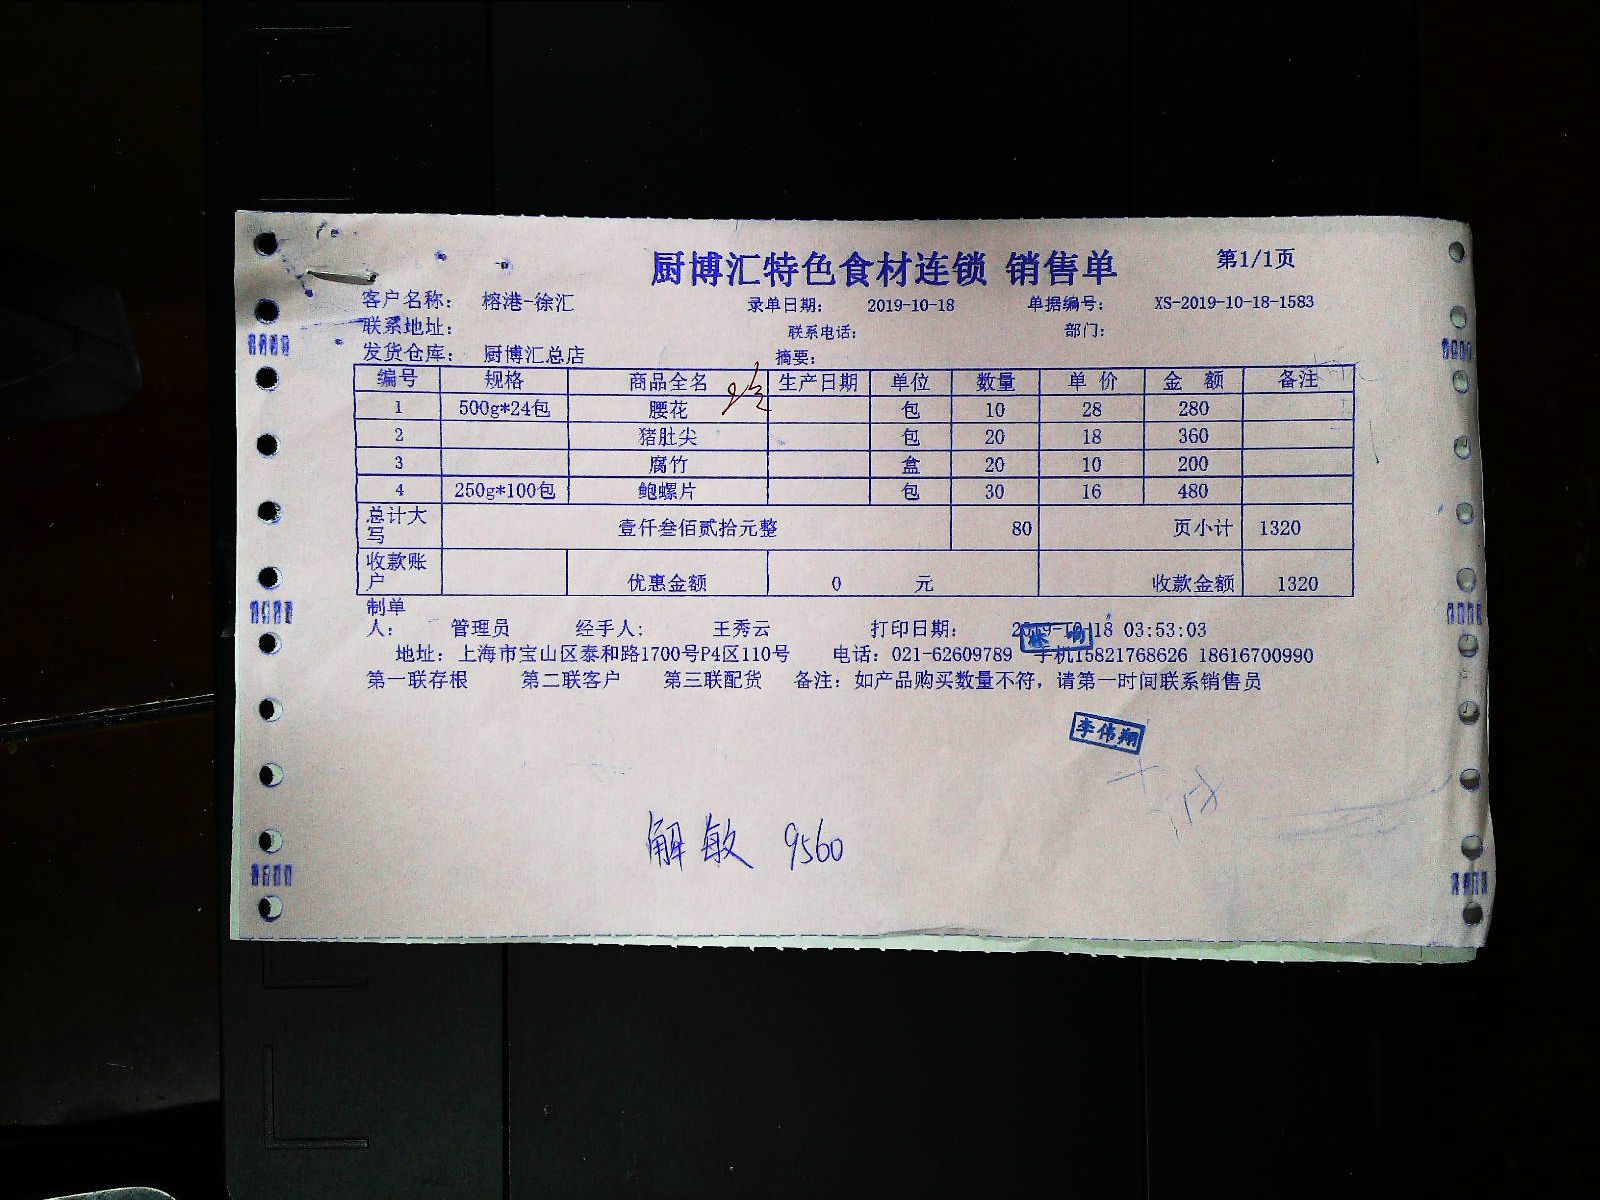 厨博汇特色食材连锁 销售单 第1/1页
客户名称： 榕港-徐汇 录单日期： 2019-10-18 单据编号： XS-2019-10-18-1583
联系地址： 联系电话： 部门：
发货仓库： 厨博汇总店 摘要：
编号 规格 商品全名 生产日期 单位 数量 单价 金额 备注
1 500g*24包 腰花 包 10 28 280
2 猪肚尖 包 20 18 360
3 腐竹 盒 20 10 200
4 250g*100包 鲍螺片 包 30 16 480
总计大写 壹仟叁佰贰拾元整 80 页小计 1320
收款账户 优惠金额 0 元 收款金额 1320
制单人： 管理员 经手人： 王秀云 打印日期： 2019-10-18 03:53:03
地址：上海市宝山区泰和路1700号P4区110号 电话：021-62609789 手机15821768626 18616700990
第一联存根 第二联客户 第三联配货 备注：如产品购买数量不符，请第一时间联系销售员
李伟翔
解敏 9560